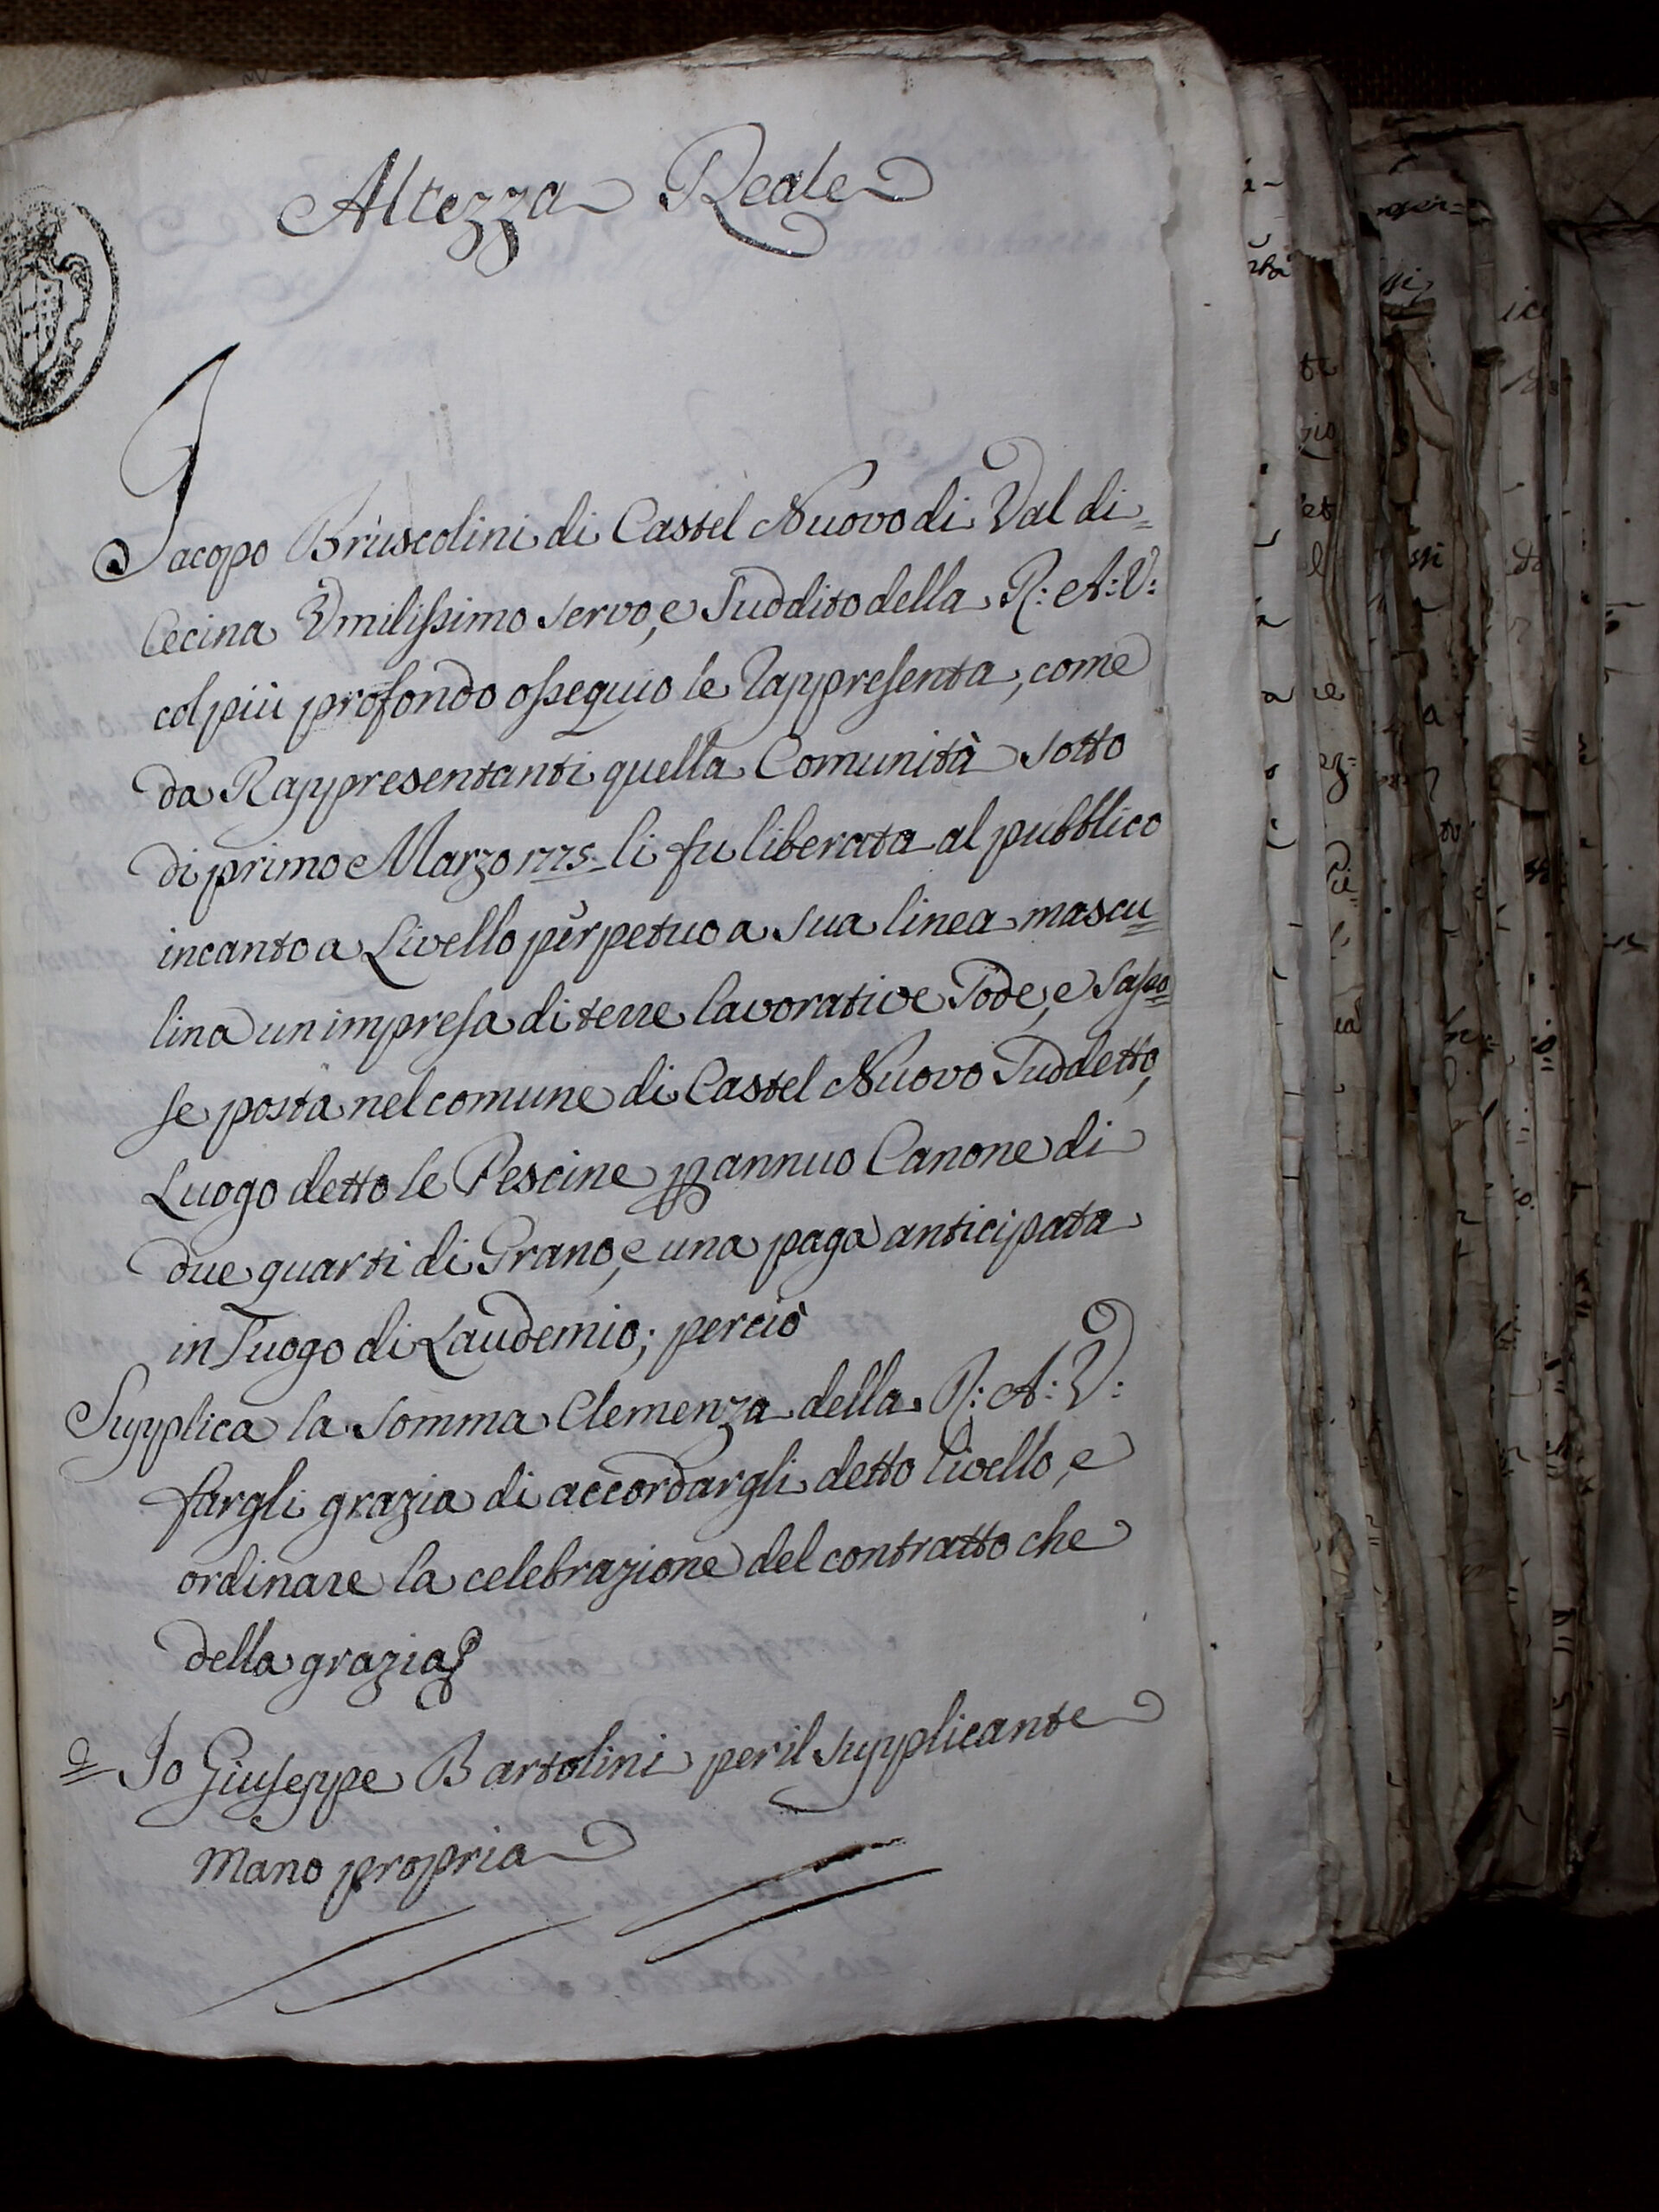 Altezza Reale
Jacopo Bruscolini di Castel Nuovo di Val di=
Cecina Umilissimo servo, e Suddito della R: A: V:
col più profondo ossequio le Rappresenta, come
da Rappresentanti quella Comunità sotto
di primo Marzo 1775 li fu liberata al pubblico
incanto a Livello perpetuo a sua linea mascu=
lina un impresa di terre lavorative Sode, e Sasso=
se posta nel comune di Castel Nuovo Suddetto,
Luogo detto le Pescine p annuo Canone di
due quarti di Grano, e una paga anticipata
in Luogo di Laudemio; perciò
Supplica la somma Clemenza della R: A: V:
fargli grazia di accordargli detto livello, e
ordinare la celebrazione del contratto che
della grazia
Io Giuseppe Bartolini per il supplicante
mano propria